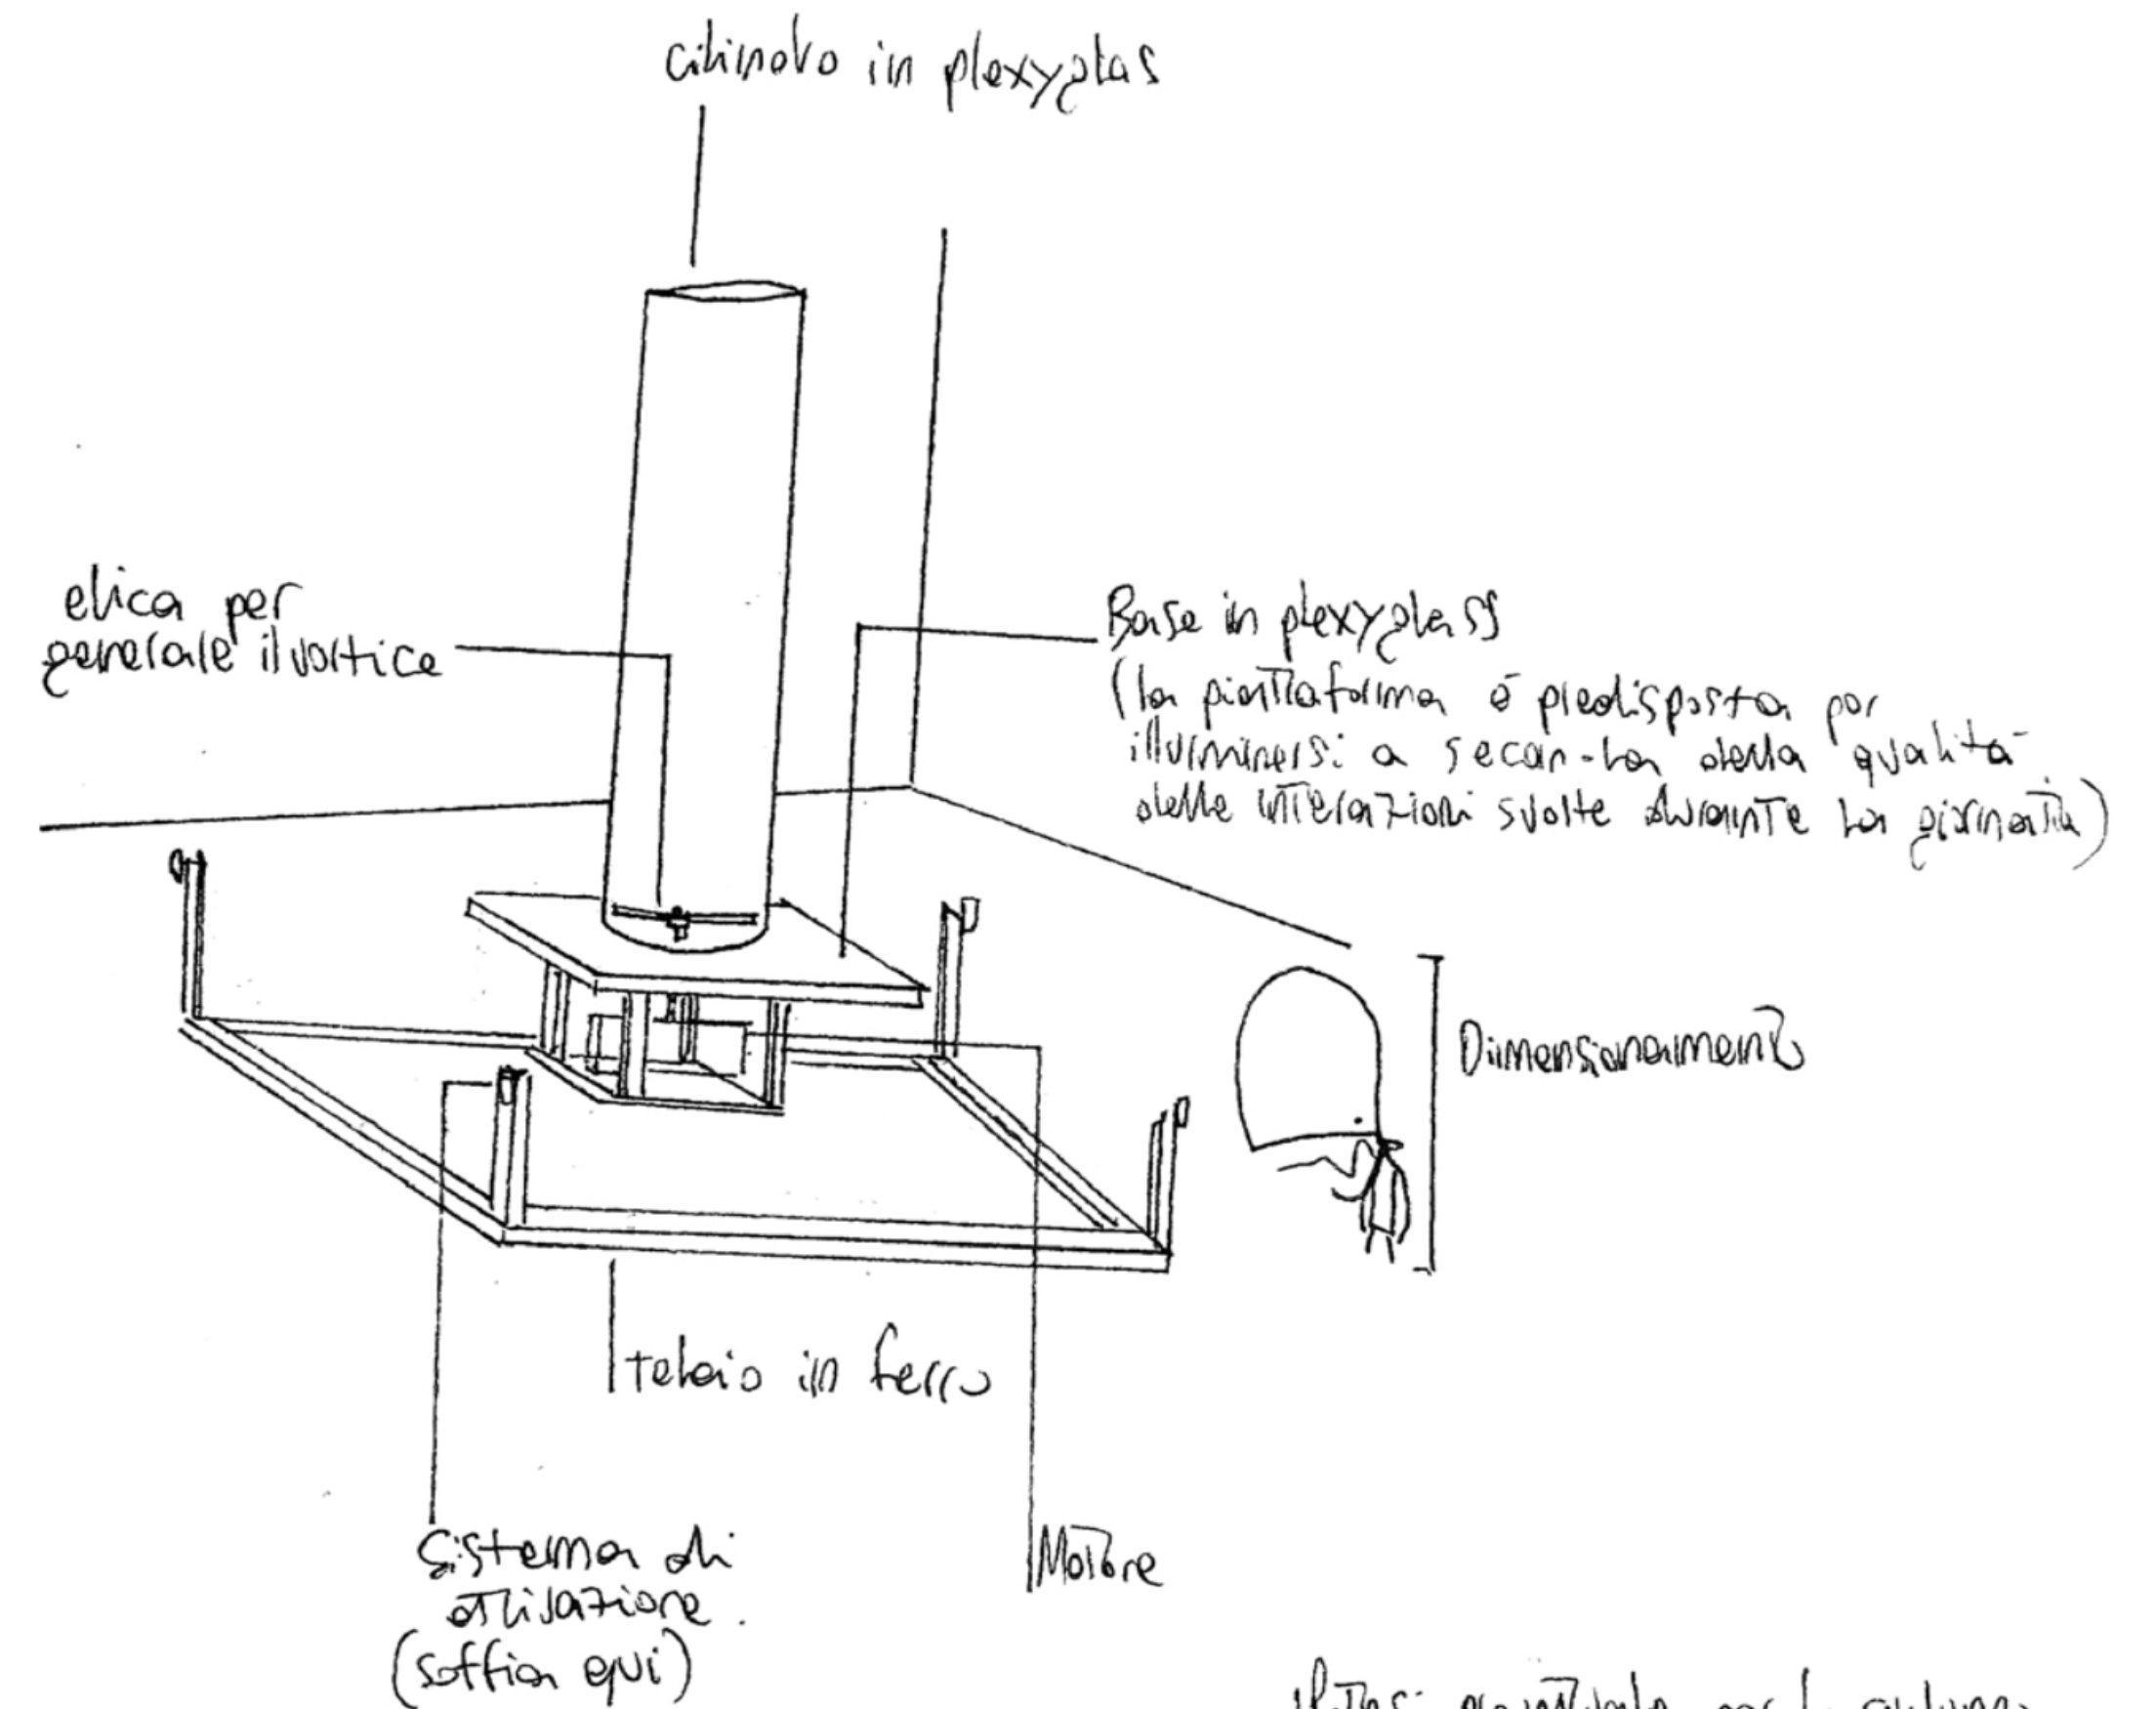 cilindro in plexyglas
elica per
generare il vortice
Base in plexyglass
(la piattaforma è predisposta per
illuminarsi a secon-da della qualità
delle interazioni svolte durante la giornata)
Dimensionamento
telaio in ferro
Sistema di
attivazione.
(soffia qui)
Motore